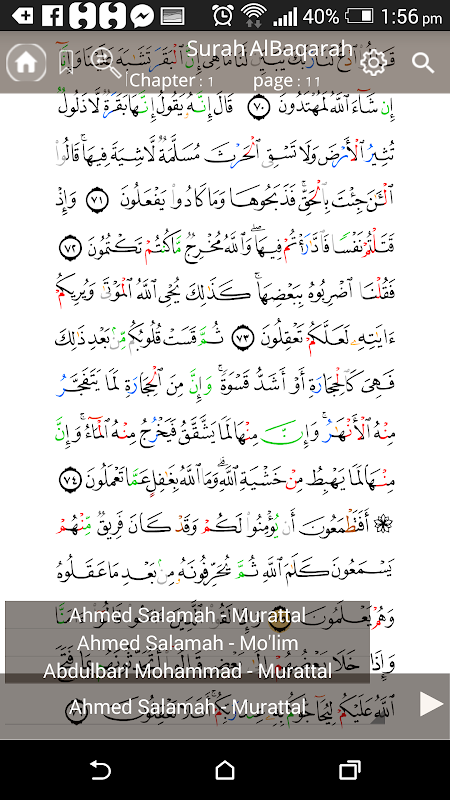 40% 1:56 pm
Surah AlBaqarah
Chapter : 1 page : 11
ٱلْبَقَرَ تَشَٰبَهَ عَلَيْنَا وَإِنَّآ
إِن شَآءَ ٱللَّهُ لَمُهْتَدُونَ ٧٠ قَالَ إِنَّهُۥ يَقُولُ إِنَّهَا بَقَرَةٌ لَّا ذَلُولٌ
تُثِيرُ ٱلْأَرْضَ وَلَا تَسْقِى ٱلْحَرْثَ مُسَلَّمَةٌ لَّا شِيَةَ فِيهَا ۚ قَالُوا۟
ٱلْـَٰٔنَ جِئْتَ بِٱلْحَقِّ ۚ فَذَبَحُوهَا وَمَا كَادُوا۟ يَفْعَلُونَ ٧١ وَإِذْ
قَتَلْتُمْ نَفْسًا فَٱدَّٰرَْٰٔتُمْ فِيهَا ۖ وَٱللَّهُ مُخْرِجٌ مَّا كُنتُمْ تَكْتُمُونَ ٧٢
فَقُلْنَا ٱضْرِبُوهُ بِبَعْضِهَا ۚ كَذَٰلِكَ يُحْىِ ٱللَّهُ ٱلْمَوْتَىٰ وَيُرِيكُمْ
ءَايَٰتِهِۦ لَعَلَّكُمْ تَعْقِلُونَ ٧٣ ثُمَّ قَسَتْ قُلُوبُكُم مِّنۢ بَعْدِ ذَٰلِكَ
فَهِىَ كَٱلْحِجَارَةِ أَوْ أَشَدُّ قَسْوَةً ۚ وَإِنَّ مِنَ ٱلْحِجَارَةِ لَمَا يَتَفَجَّرُ
مِنْهُ ٱلْأَنْهَٰرُ ۚ وَإِنَّ مِنْهَا لَمَا يَشَّقَّقُ فَيَخْرُجُ مِنْهُ ٱلْمَآءُ ۚ وَإِنَّ
مِنْهَا لَمَا يَهْبِطُ مِنْ خَشْيَةِ ٱللَّهِ ۗ وَمَا ٱللَّهُ بِغَٰفِلٍ عَمَّا تَعْمَلُونَ ٧٤
۞ أَفَتَطْمَعُونَ أَن يُؤْمِنُوا۟ لَكُمْ وَقَدْ كَانَ فَرِيقٌ مِّنْهُمْ
يَسْمَعُونَ كَلَٰمَ ٱللَّهِ ثُمَّ يُحَرِّفُونَهُۥ مِنۢ بَعْدِ مَا عَقَلُوهُ
وَهُمْ يَعْلَمُونَ
Ahmed Salamah - Murattal
Ahmed Salamah - Mo'lim
Abdulbari Mohammad - Murattal
وَإِذَا خَلَا
Ahmed Salamah - Murattal
ٱللَّهُ عَلَيْكُمْ لِيُحَآجُّوكُم